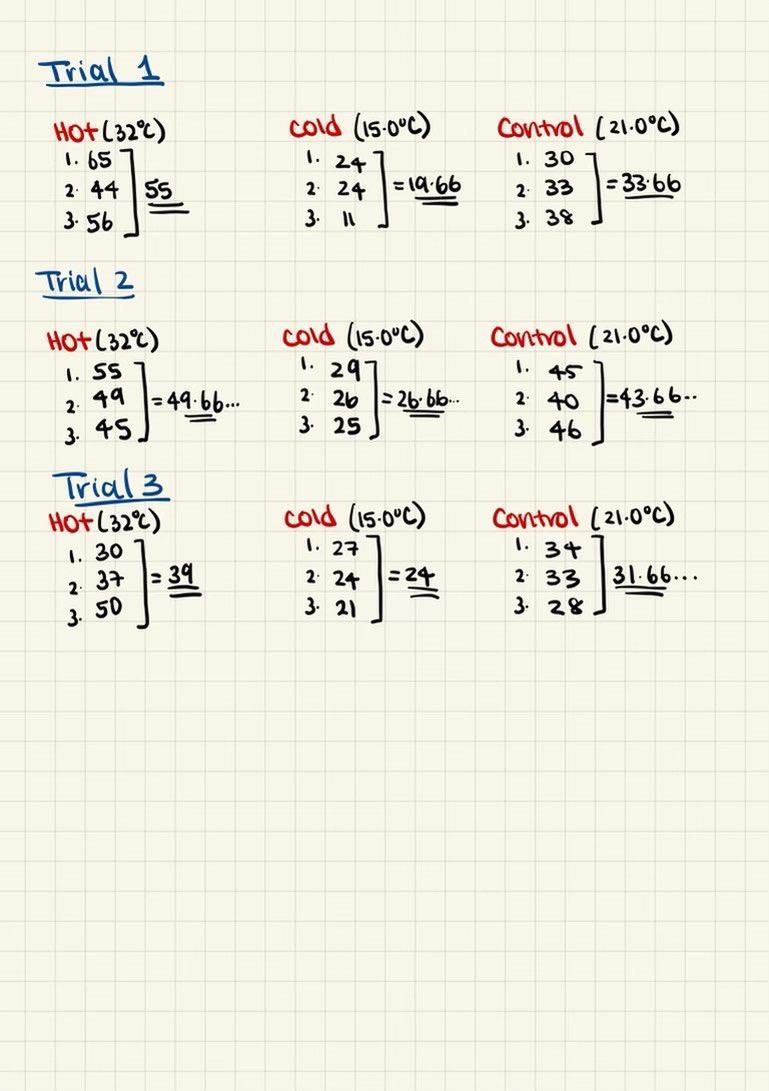 Trial 1
Hot (32°C) Cold (15.0°C) Control (21.0°C)
1. 65 1. 24 1. 30
2. 44 55 2. 24 = 19.66 2. 33 = 33.66
3. 56 3. 11 3. 38
Trial 2
Hot (32°C) Cold (15.0°C) Control (21.0°C)
1. 55 1. 29 1. 45
2. 49 = 49.66... 2. 26 = 26.66... 2. 40 = 43.66..
3. 45 3. 25 3. 46
Trial 3
Hot (32°C) Cold (15.0°C) Control (21.0°C)
1. 30 1. 27 1. 34
2. 37 = 39 2. 24 = 24 2. 33 31.66...
3. 50 3. 21 3. 28